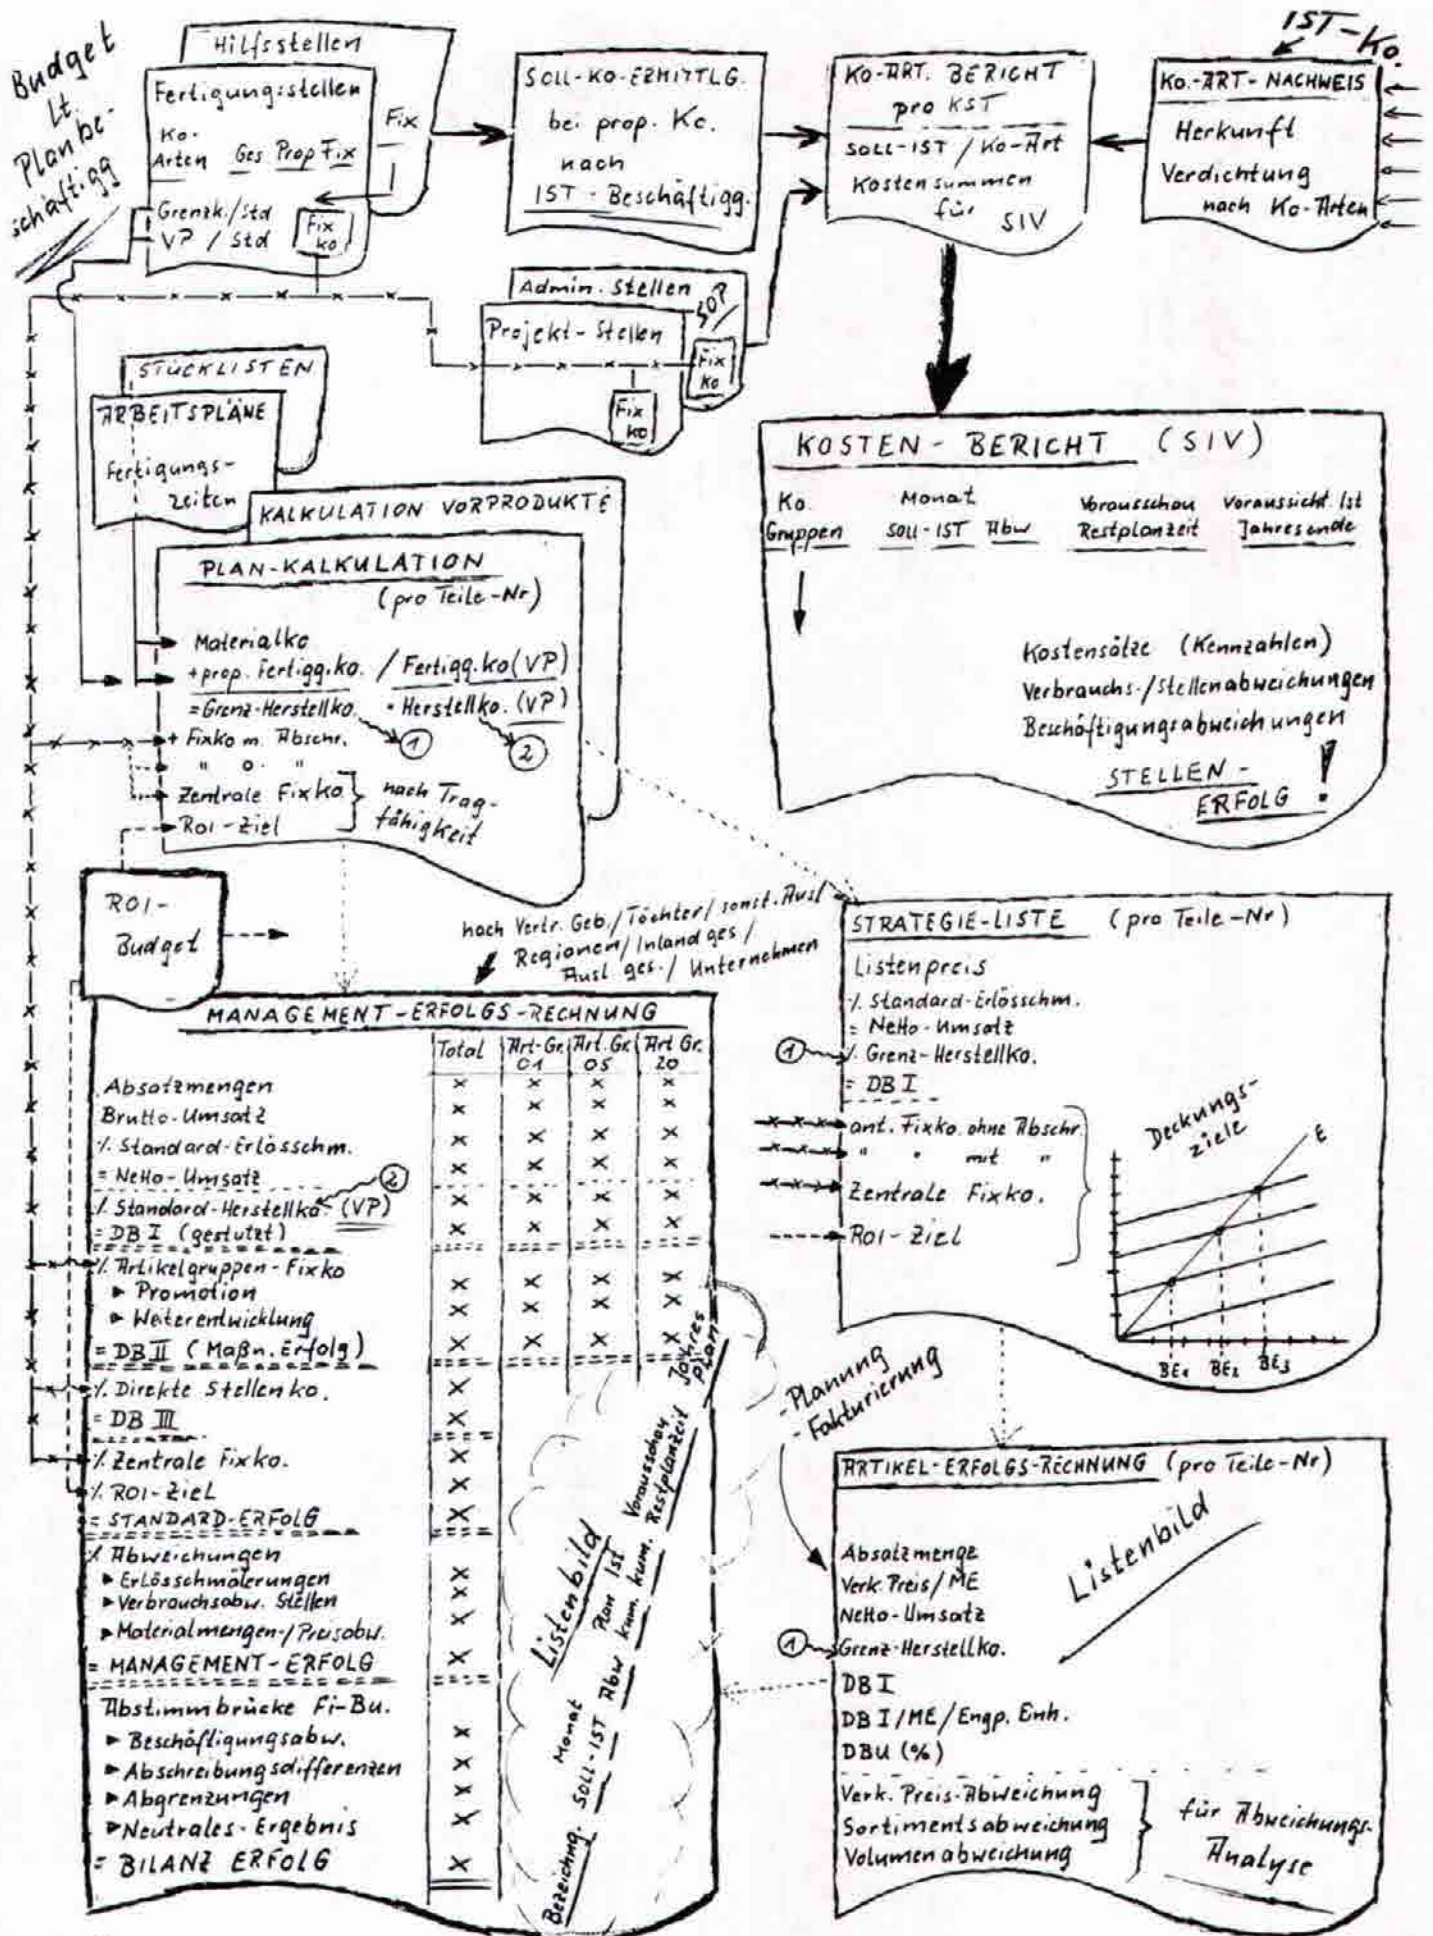 Budget
Lt.
Planbe-
schäftigg
Hilfsstellen
Fertigungsstellen
Ko.
Arten Ges Prop Fix
Grenzk./Std
VP / Std
Fix
ko
Fix
SOLL-KO-ERMITTLG.
bei prop. Ko.
nach
IST-Beschäftigg.
KO-ART. BERICHT
pro KST
SOLL-IST / Ko-Art
Kostensummen
für
SIV
IST-Ko.
KO.-ART-NACHWEIS
Herkunft
Verdichtung
nach Ko-Arten
Admin. Stellen
SOP
Projekt-Stellen
Fix
ko
Fix
ko
STÜCKLISTEN
ARBEITSPLÄNE
Fertigungs-
zeiten
KALKULATION VORPRODUKTE
PLAN-KALKULATION
(pro Teile-Nr)
Materialko
+prop. Fertigg.ko. / Fertigg.ko(VP)
=Grenz-Herstellko. = Herstellko. (VP)
+ Fixko m. Abschr. 1 2
" o. "
Zentrale Fixko
ROI-Ziel
nach Trag-
fähigkeit
KOSTEN-BERICHT (SIV)
Ko. Monat Vorausschau Voraussicht. Ist
Gruppen SOLL-IST Abw Restplanzeit Jahresende
Kostensätze (Kennzahlen)
Verbrauchs-/Stellenabweichungen
Beschäftigungsabweichungen
STELLEN-
ERFOLG !
ROI-
Budget
nach Vertr. Geb./Töchter/sonst. Ausl
Regionen/Inland ges/
Ausl ges./ Unternehmen
MANAGEMENT-ERFOLGS-RECHNUNG
Total Art-Gr. Art. Gr. Art Gr.
01 05 20
Absatzmengen x x x x
Brutto-Umsatz x x x x
% Standard-Erlösschm. x x x x
= Netto-Umsatz x x x x
2
% Standard-Herstellko. (VP) x x x x
= DB I (gestutzt) x x x x
% Artikelgruppen-Fixko x x x x
▸ Promotion x x x x
▸ Weiterentwicklung
= DB II (Maßn. Erfolg) x x x x
% Direkte Stellenko. x
= DB III x
% Zentrale Fixko. x
% ROI-Ziel x
= STANDARD-ERFOLG x
% Abweichungen
▸ Erlösschmälerungen x
▸ Verbrauchsabw. Stellen x
▸ Materialmengen-/Preisabw. x
= MANAGEMENT-ERFOLG x
Abstimmbrücke Fi-Bu.
▸ Beschäftigungsabw. x
▸ Abschreibungsdifferenzen x
▸ Abgrenzungen x
▸ Neutrales-Ergebnis x
= BILANZ ERFOLG x
Listenbild
Bezeichng. Monat Plan Ist Vorausschau Jahres
SOLL-IST Abw kum. kum. Restplanzeit plan
STRATEGIE-LISTE (pro Teile-Nr)
Listenpreis
% Standard-Erlösschm.
= Netto-Umsatz
1 % Grenz-Herstellko.
= DB I
ant. Fixko. ohne Abschr.
" " mit "
Zentrale Fixko.
ROI-Ziel
Deckungs-
ziele
E
BE1 BE2 BE3
- Planung
- Fakturierung
ARTIKEL-ERFOLGS-RECHNUNG (pro Teile-Nr)
Listenbild
Absatzmenge
Verk. Preis/ME
Netto-Umsatz
1 Grenz-Herstellko.
DB I
DB I/ME/Engp. Einh.
DBU (%)
Verk. Preis-Abweichung
Sortimentsabweichung
Volumenabweichung
für Abweichungs-
Analyse